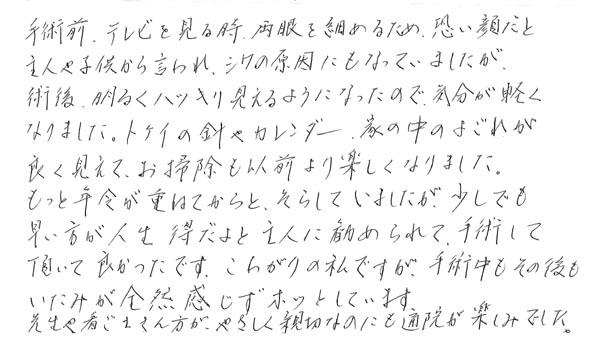 手術前、テレビを見る時、両眼を細めるため、恐い顔だと
主人や子供から言われ、シワの原因にもなっていましたが、
術後、明るくハッキリ見えるようになったので、気分が軽く
なりました。トケイの針やカレンダー、家の中のよごれが
良く見えて、お掃除も以前より楽しくなりました。
もっと年令が重ねてからと、そらしていましたが、少しでも
早い方が人生得だよと主人に勧められて、手術して
頂いて良かったです。こわがりの私ですが、手術中もその後も
いたみが全然感じずホッとしています。
先生や看ごふさん方が、やさしく親切なのにも通院が楽しみでした。